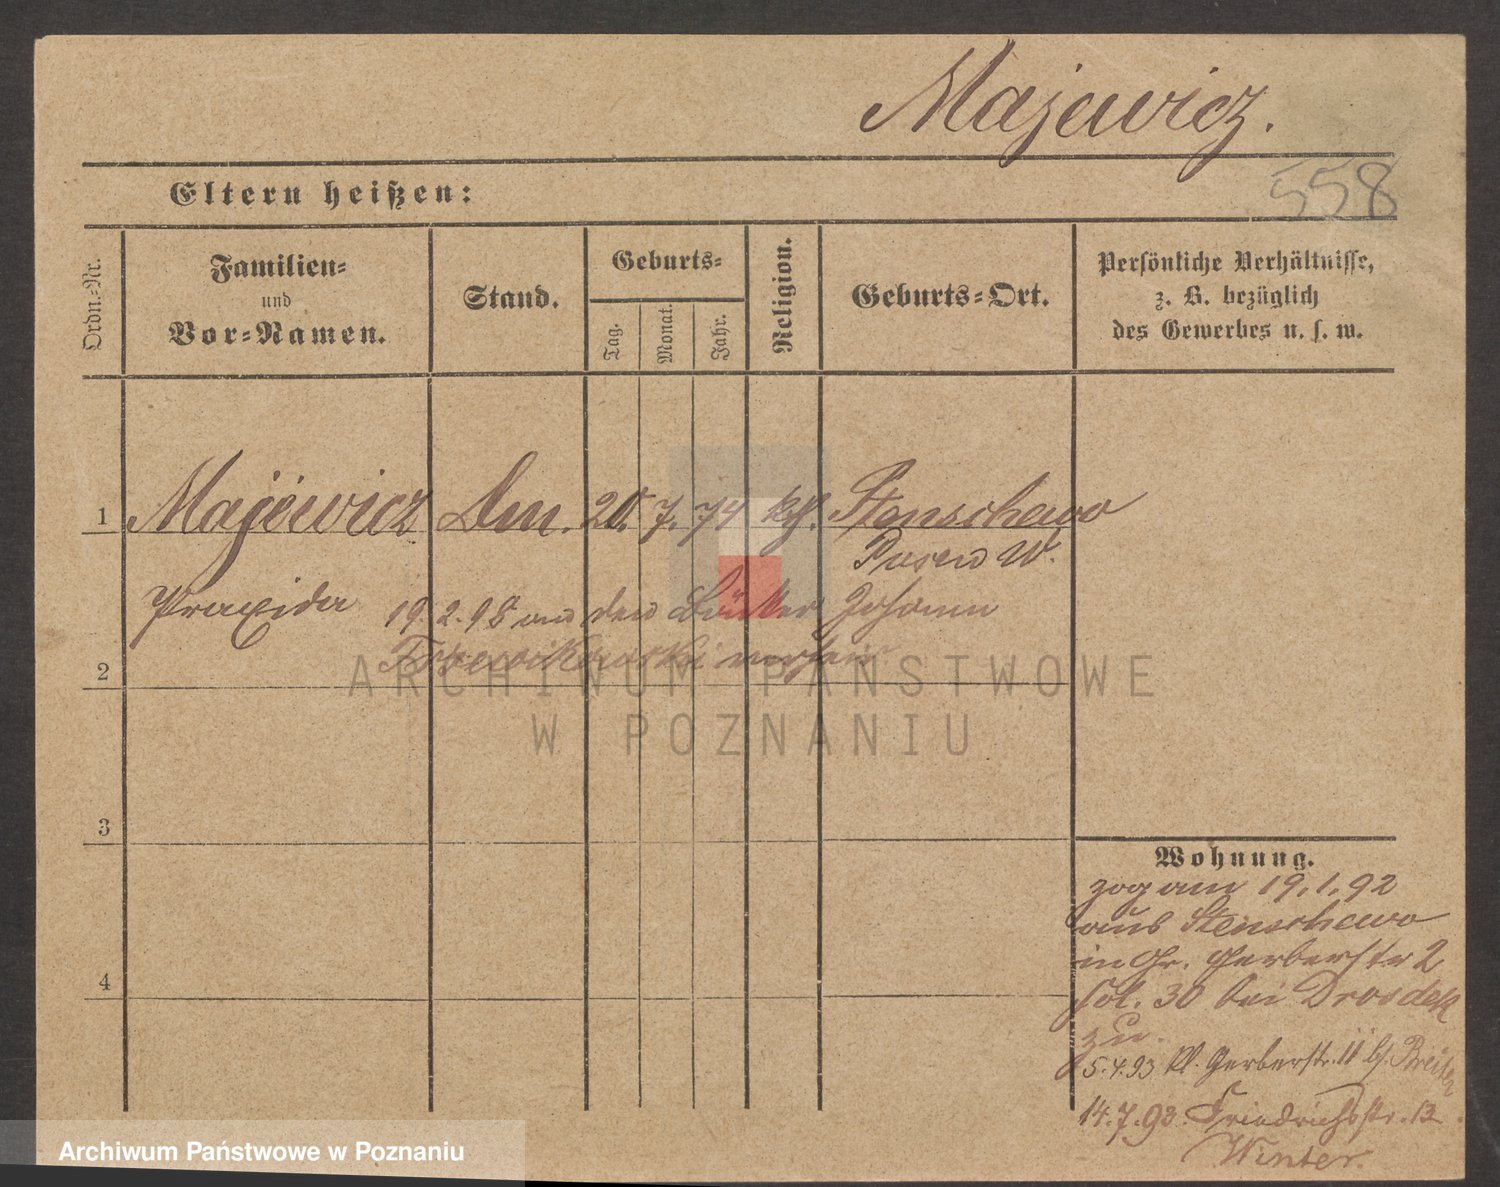 Majewicz.
Eltern heißen:
558
Ordn.-Nr.
Familien-
und
Vor-Namen.
Stand.
Geburts-
Tag.
Monat.
Jahr.
Religion.
Geburts-Ort.
Persönliche Verhältnisse,
z. B. bezüglich
des Gewerbes u. s. w.
1 Majewicz Dm. 20. 7. 74 kt. Stenschewo
Posen W.
Praxida 19.2.98 an den Bäcker Johann
2
3
4
Wohnung.
zog am 19.1.92
aus Stenschewo
in Gr. Gerberstr 2
fol. 30 bei Drosdek
zu.
5.4.93 Kl. Gerberstr. 11 b.
14.7.93. Friedrichsstr. 13
Winter.
ARCHIWUM PAŃSTWOWE
W POZNANIU
Archiwum Państwowe w Poznaniu